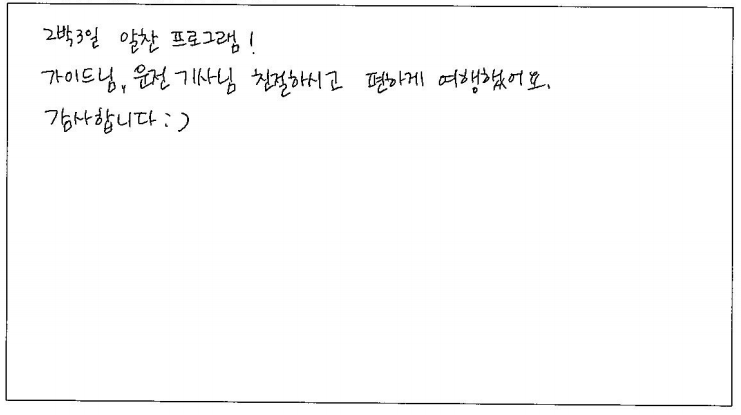 2박3일 알찬 프로그램!
가이드님, 운전기사님 친절하시고 편하게 여행했어요.
감사합니다 : )